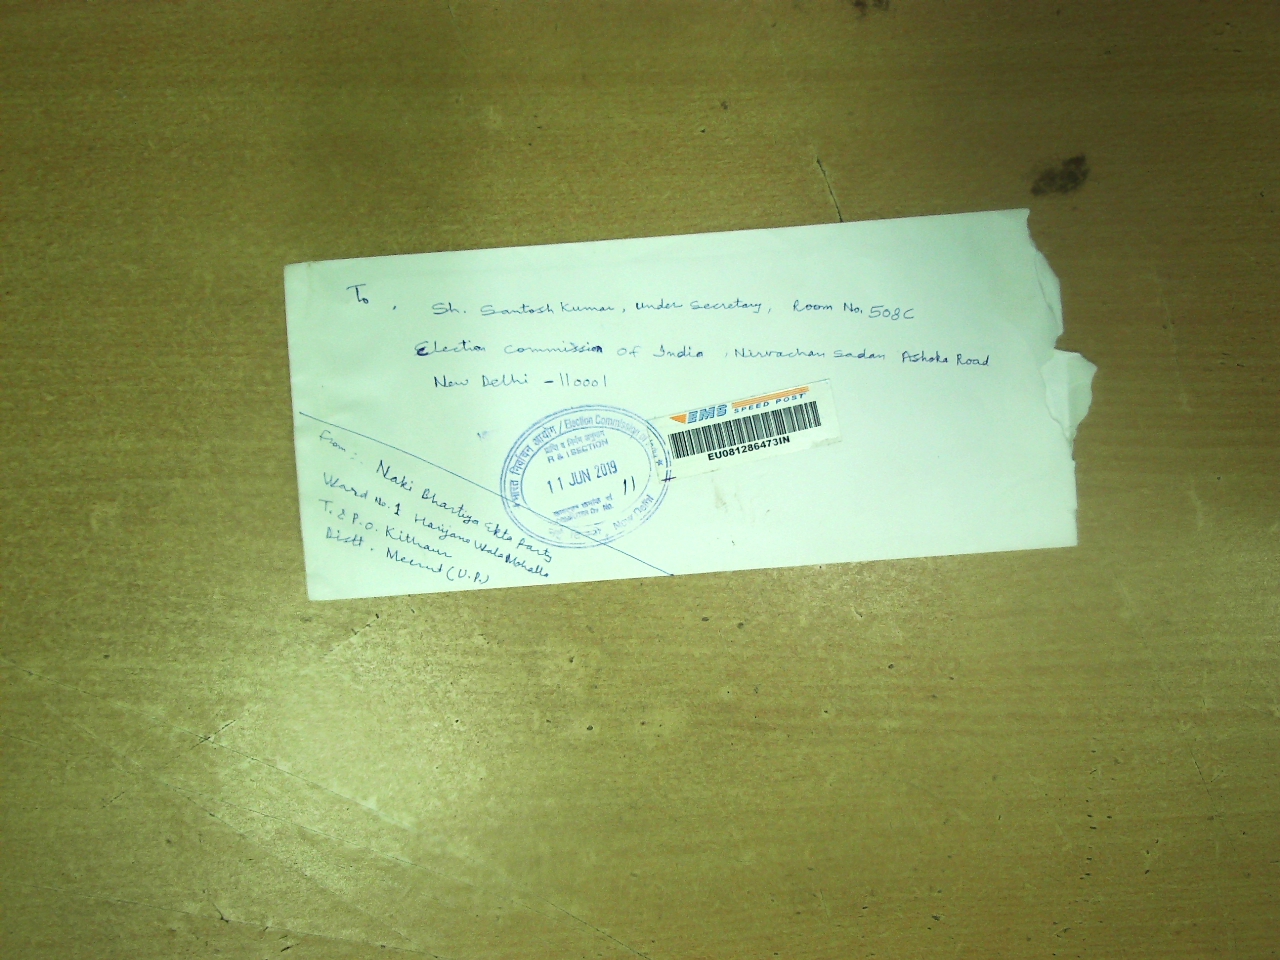 To,
Sh. Santosh Kumar, Under Secretary, Room No. 508C
Election Commission of India, Nirvachan Sadan Ashoka Road
New Delhi - 110001
EMS SPEED POST
EU081286473IN
भारत निर्वाचन आयोग / Election Commission of India
R & I SECTION
11 JUN 2019
11
New Delhi
From :-
Naki Bhartiya Ekta Party
Ward No. 1 Harijano Wala Mohalla
T. & P.O. Kithaur
Distt. Meerut (U.P.)